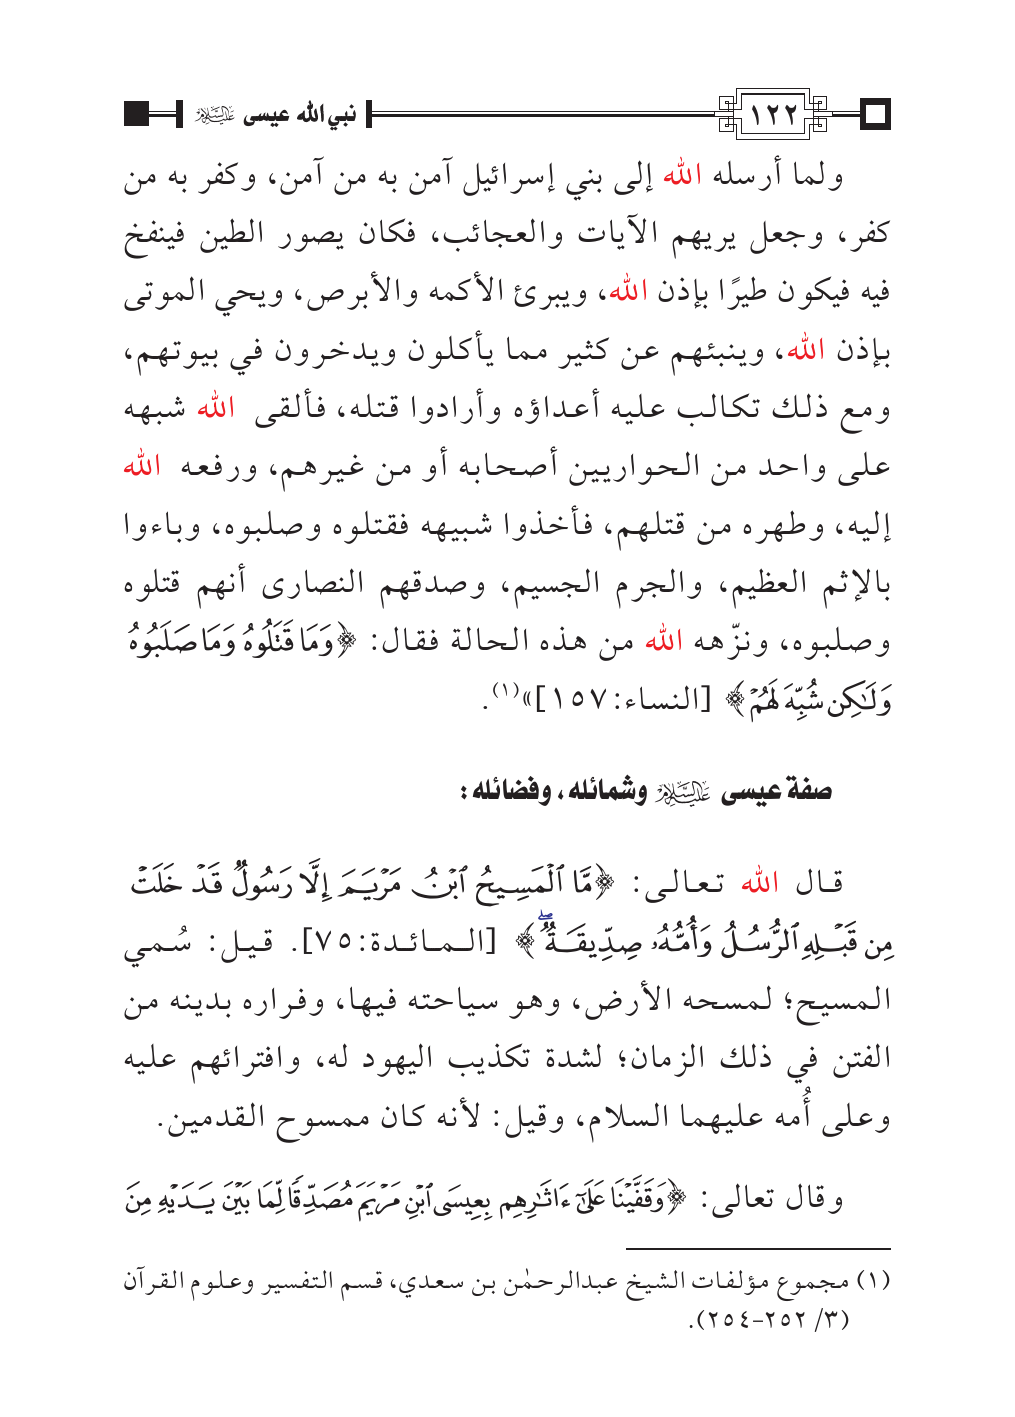 ١٢٢ نبي الله عيسى عليه السلام
ولما أرسله الله إلى بني إسرائيل آمن به من آمن، وكفر به من
كفر، وجعل يريهم الآيات والعجائب، فكان يصور الطين فينفخ
فيه فيكون طيرًا بإذن الله، ويبرئ الأكمه والأبرص، ويحي الموتى
بإذن الله، وينبئهم عن كثير مما يأكلون ويدخرون في بيوتهم،
ومع ذلك تكالب عليه أعداؤه وأرادوا قتله، فألقى الله شبهه
على واحد من الحواريين أصحابه أو من غيرهم، ورفعه الله
إليه، وطهره من قتلهم، فأخذوا شبيهه فقتلوه وصلبوه، وباءوا
بالإثم العظيم، والجرم الجسيم، وصدقهم النصارى أنهم قتلوه
وصلبوه، ونزّهه الله من هذه الحالة فقال: ﴿وَمَا قَتَلُوهُ وَمَا صَلَبُوهُ
وَلَٰكِن شُبِّهَ لَهُمْ﴾ [النساء:١٥٧]»(١).
صفة عيسى عليه السلام وشمائله، وفضائله:
قال الله تعالى: ﴿مَّا ٱلْمَسِيحُ ٱبْنُ مَرْيَمَ إِلَّا رَسُولٌ قَدْ خَلَتْ
مِن قَبْلِهِ ٱلرُّسُلُ وَأُمُّهُۥ صِدِّيقَةٌۖ﴾ [المائدة:٧٥]. قيل: سُمي
المسيح؛ لمسحه الأرض، وهو سياحته فيها، وفراره بدينه من
الفتن في ذلك الزمان؛ لشدة تكذيب اليهود له، وافترائهم عليه
وعلى أُمه عليهما السلام، وقيل: لأنه كان ممسوح القدمين.
وقال تعالى: ﴿وَقَفَّيْنَا عَلَىٰٓ ءَاثَٰرِهِم بِعِيسَى ٱبْنِ مَرْيَمَ مُصَدِّقًا لِّمَا بَيْنَ يَدَيْهِ مِنَ
(١) مجموع مؤلفات الشيخ عبدالرحمٰن بن سعدي، قسم التفسير وعلوم القرآن
(٣/ ٢٥٢-٢٥٤).